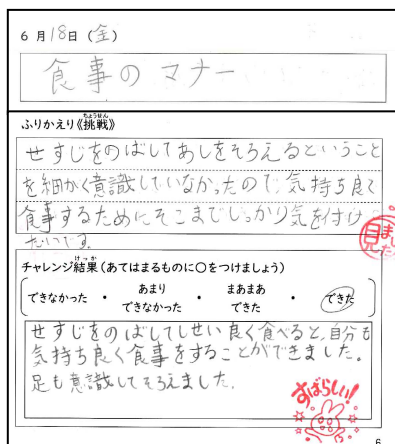 6月18日(金)
食事のマナー
ふりかえり《挑戦》
ちょうせん
せすじをのばしてあしをそろえるということ
を細かく意識していなかったので、気持ち良く
食事するためにそこまでしっかり気を付け
たいです。
見ました
チャレンジ結果(あてはまるものに○をつけましょう)
けっか
できなかった ・ あまりできなかった ・ まあまあできた ・ できた
せすじをのばしてしせい良く食べると、自分も
気持ち良く食事をすることができました。
足も意識してそろえました。
すばらしい!
6